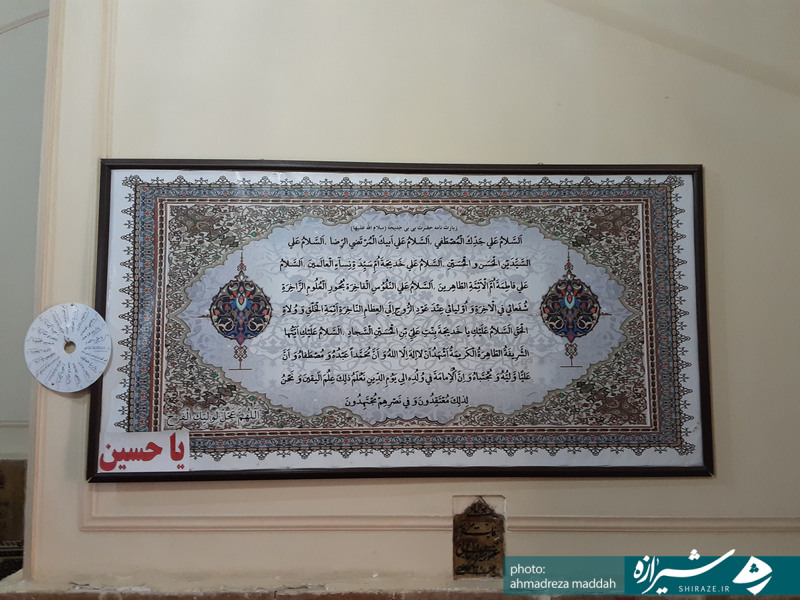 (زیارت نامه حضرت بی بی خدیجه (سلام الله علیها
اَلسَّلامُ عَلی جَدِّكَ الْمُصْطَفی اَلسَّلامُ عَلی اَبیكَ الْمُرْتَضی الرِّضا اَلسَّلامُ عَلَی
السَّیِّدَیْنِ الْحَسَنِ وَ الْحُسَیْنِ اَلسَّلامُ عَلی خَدیجَةَ اُمِّ سَیِّدَةِ نِسآءِ الْعالَمینَ اَلسَّلامُ
عَلی فاطِمَةَ اُمِّ الْاَئِمَّةِ الطّاهِرینَ اَلسَّلامُ عَلَی النُّفُوسِ الْفاخِرَةِ بُحُورِ الْعُلُومِ الزّاخِرَةِ
شُفَعائی فِی الْآخِرَةِ وَ اَوْلِیائی عِنْدَ عَوْدِ الرُّوحِ اِلَی الْعِظامِ النّاخِرَةِ اَئِمَّةِ الْخَلْقِ وَ وُلاةِ
الْحَقِّ اَلسَّلامُ عَلَیْكِ یا خَدیجَةُ بِنْتَ عَلِیِّ بْنِ الْحُسَیْنِ السَّجادِ اَلسَّلامُ عَلَیْكِ اَیَّتُهَا
الشَّریفَةُ الطّاهِرَةُ الْكَریمَةُ اَشْهَدُ اَنْ لا اِلهَ اِلَّا اللهُ وَ اَنَّ مُحَمَّداً عَبْدُهُ وَ مُصْطَفاهُ وَ اَنَّ
عَلِیّاً وَلِیُّهُ وَ مُجْتَباهُ وَ اِنَّ الْاِمامَةَ فی وُلْدِهِ اِلی یَوْمِ الدّینِ نَعْلَمُ ذلِكَ عِلْمَ الْیَقینِ وَ نَحْنُ
لِذلِكَ مُعْتَقِدُونَ وَ فی نَصْرِهِمْ مُجْتَهِدُونَ
اللّهُمَّ عَجِّلْ لِوَلِیِّكَ الْفَرَجَ
یا حسین
photo:
ahmadreza maddah
شیرازه
SHIRAZE.IR